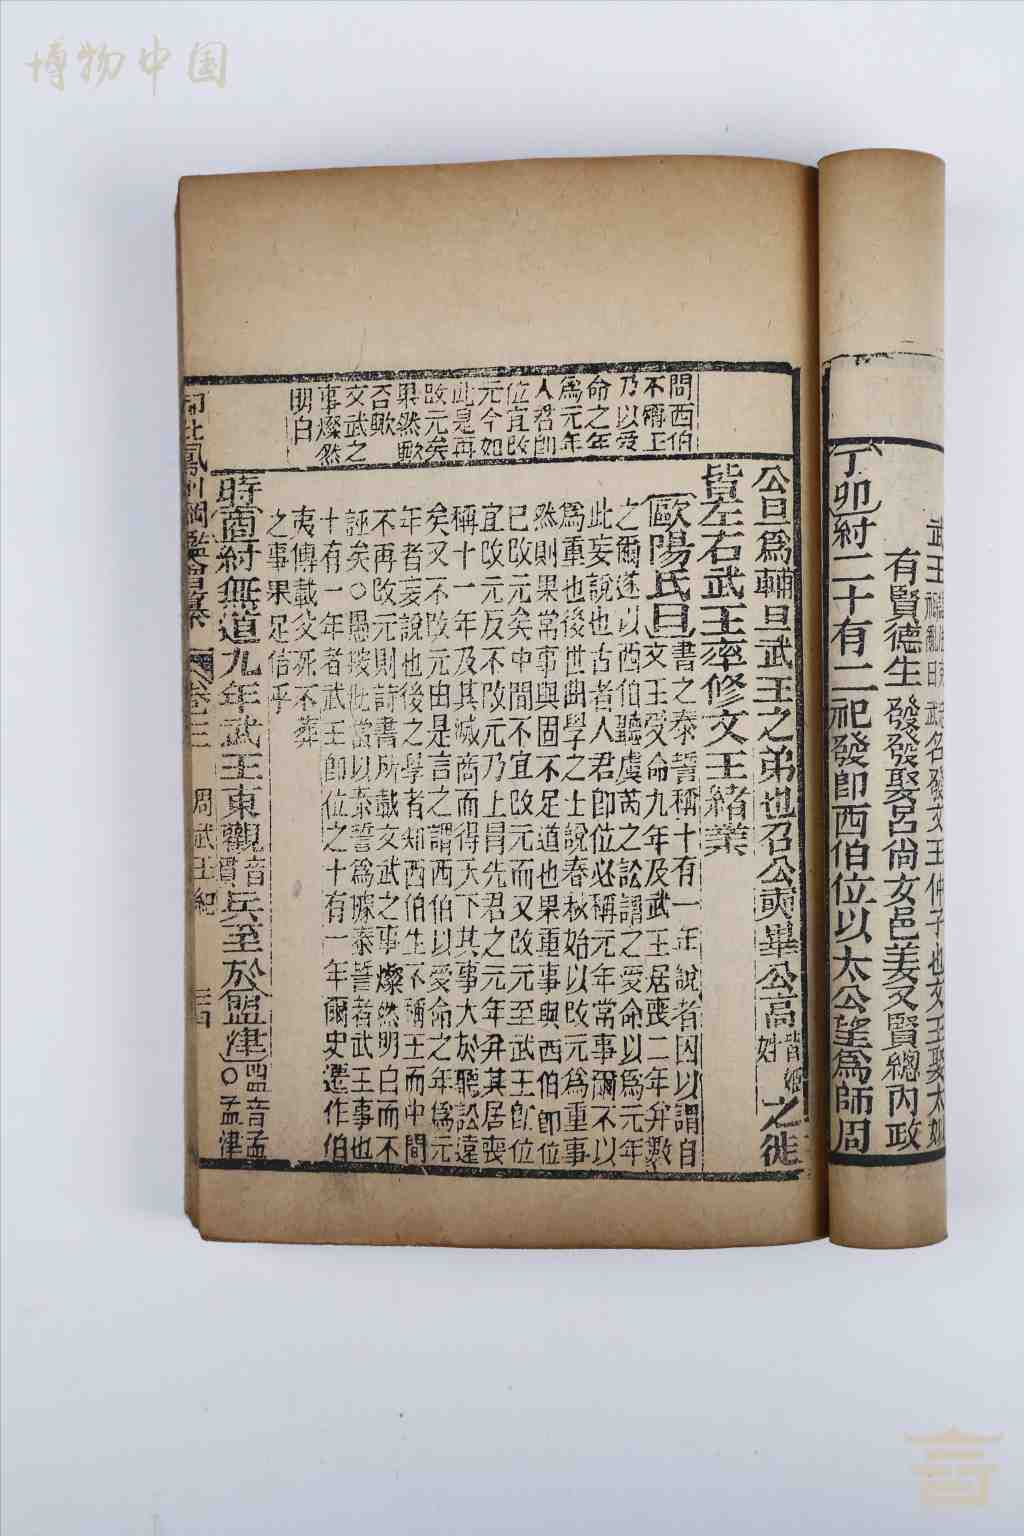 博物中国
武名發文王仲子也文王娶太姒
有賢德生發發娶呂尚女邑姜又賢總內政
丁卯紂二十有二祀發卽西伯位以太公望爲師周
問西伯
不稱王
乃以受
命之年
爲元年
人君卽
位宜改
元今如
此是再
改元矣
果然歟
否歟
文武之
事燦然
明白
公旦爲輔旦武王之弟也召公奭畢公高皆姬姓之徒
皆左右武王率修文王緒業
歐陽氏曰書之泰誓稱十有一年說者因以謂自
文王受命九年及武王居喪二年并數
之爾遂以西伯聽虞芮之訟謂之受命以爲元年
此妄說也古者人君卽位必稱元年常事爾不以
爲重也後世曲學之士說春秋始以改元爲重事
然則果常事與固不足道也果重事與西伯卽位
已改元矣中間不宜改元而又改元至武王卽位
宜改元反不改元乃上冒先君之元年并其居喪
稱十一年及其滅商而得天下其事大於聽訟遠
矣又不改元由是言之謂西伯以受命之年爲元
年者妄說也後之學者知西伯生不稱王而中間
不再改元則詩書所載文武之事燦然明白而不
誣矣○愚按此當以泰誓爲據泰誓者武王事也
十有一年者武王卽位之十有一年爾史遷作伯
夷傳載父死不葬
之事果足信乎
時商紂無道九年武王東觀音貫兵至於盟津盟音孟○孟津
鳳州綱鑑會纂 卷之三 周武王紀 三四